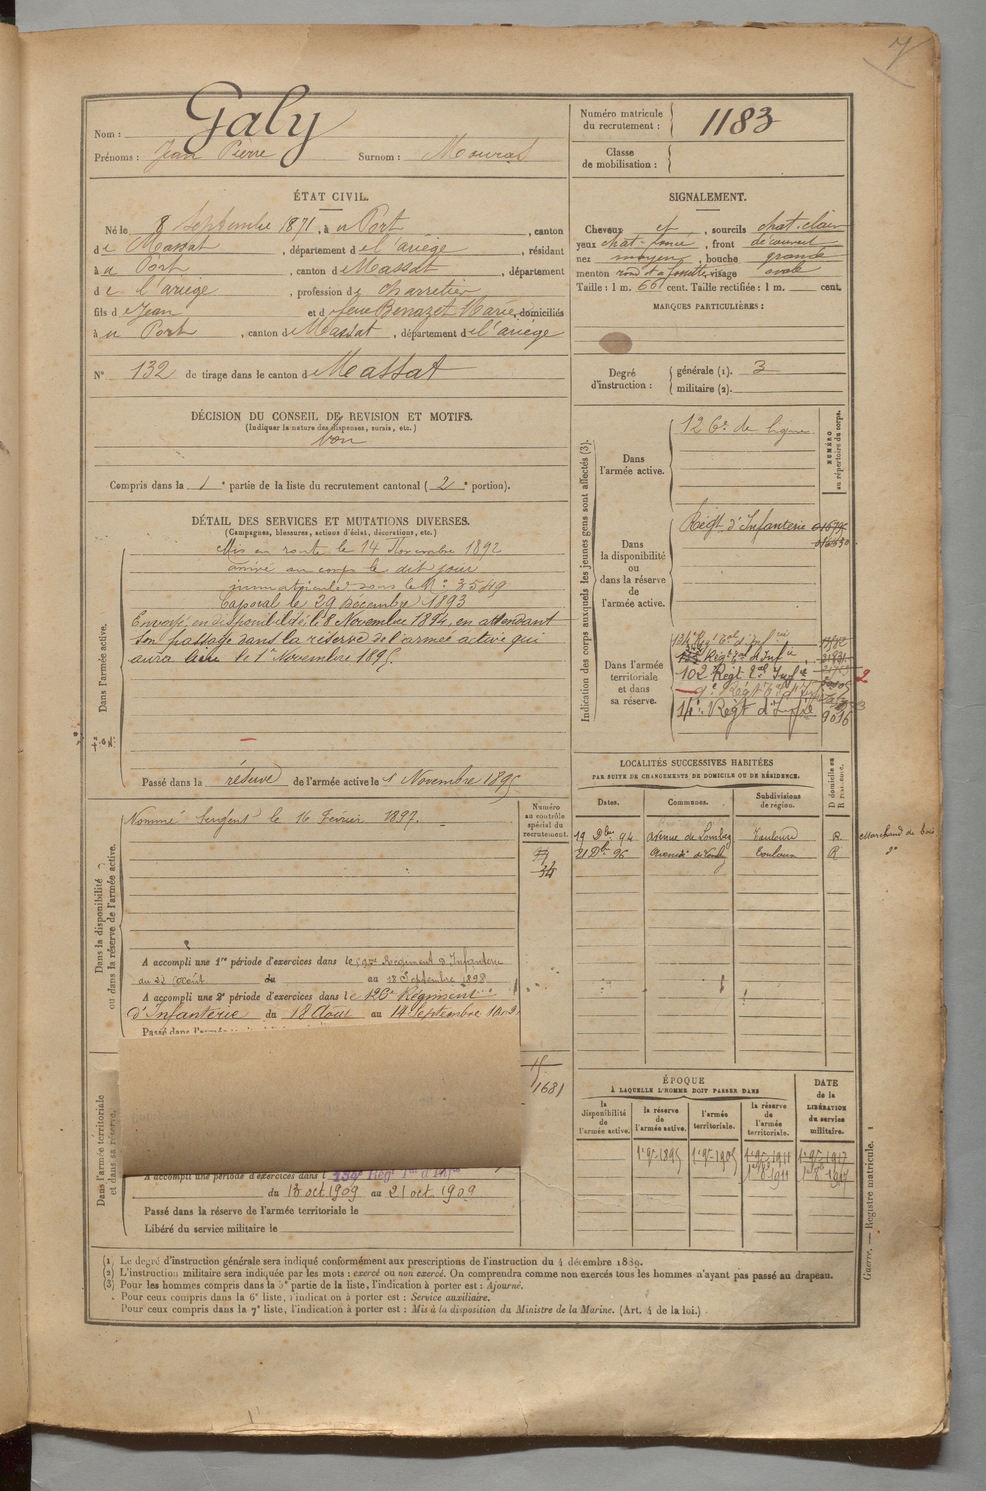 7
Nom : Galy
Prénoms : Jean Pierre Surnom : Mouras
Numéro matricule du recrutement : 1183
Classe de mobilisation :
ÉTAT CIVIL.
Né le 8 Septembre 1871, à u Port, canton
de Massat, département de l'ariège, résidant
à u Port, canton de Massat, département
de l'ariège, profession de charretier
fils de Jean et de feue Bonazet Marie, domiciliés
à u Port, canton de Massat, département de l'ariège
N° 132 de tirage dans le canton de Massat
SIGNALEMENT.
Cheveux et, sourcils chat-clair
yeux chat-foncé, front découvert
nez moyen, bouche grande
menton rond à fossette, visage ovale
Taille : 1 m. 661 cent. Taille rectifiée : 1 m. cent.
MARQUES PARTICULIÈRES :
Degré d'instruction : générale (1). 3
militaire (2).
DÉCISION DU CONSEIL DE REVISION ET MOTIFS.
(Indiquer la nature des dispenses, sursis, etc.)
bon
Compris dans la 1e partie de la liste du recrutement cantonal (2e portion).
DÉTAIL DES SERVICES ET MUTATIONS DIVERSES.
(Campagnes, blessures, actions d'éclat, décorations, etc.)
Dans l'armée active.
Mis en route le 14 Novembre 1892
arrivé au corps le dit jour
immatriculé sous le N° 3549
Caporal le 29 Décembre 1893
Envoyé en disponibilité le 8 Novembre 1894, en attendant
son passage dans la réserve de l'armée active qui
aura lieu le 1er Novembre 1895.
Passé dans la réserve de l'armée active le 1 Novembre 1895
Indication des corps auxquels les jeunes gens sont affectés (3).
NUMÉRO au répertoire du corps.
Dans l'armée active.
126e de ligne
Dans la disponibilité ou dans la réserve de l'armée active.
Régt d'Infanterie
Dans l'armée territoriale et dans sa réserve.
134e Régt Tal d'Infie
102 Régt Tal Infie
14e Régt d'Infie 9016
Dans la disponibilité ou dans la réserve de l'armée active.
Numéro au contrôle spécial du recrutement.
Nommé Sergent le 16 Fevrier 1897.
34
A accompli une 1re période d'exercices dans le Régiment d'Infanterie
du 22 Août au 18 Septembre 1898
A accompli une 2e période d'exercices dans le 126e Régiment
d'Infanterie du 18 Aout au 14 Septembre
Passé dans l'armée
1681
Dans l'armée territoriale et dans sa réserve.
A accompli une période d'exercices dans l 134e Régt Tal d'Infie
du 13 oct 1909 au 21 oct. 1909
Passé dans la réserve de l'armée territoriale le
Libéré du service militaire le
LOCALITÉS SUCCESSIVES HABITÉES
PAR SUITE DE CHANGEMENTS DE DOMICILE OU DE RÉSIDENCE.
Dates. Communes. Subdivisions de région. D domicile ou R résidence.
19 Dbre 94 avenue de Lombez Toulouse R Marchand de bois
21 Dbre 96 Avenue de Lombez Toulouse R do
ÉPOQUE
À LAQUELLE L'HOMME DOIT PASSER DANS
DATE de la LIBÉRATION du service militaire.
la disponibilité de l'armée active. la réserve de l'armée active. l'armée territoriale. la réserve de l'armée territoriale.
1er 9bre 1895 1er 9bre 1905 1er 9bre 1911 1er 9bre 1917
1er 8bre 1911 1er 8bre 1917
Guerre. — Registre matricule. 1
(1) Le degré d'instruction générale sera indiqué conformément aux prescriptions de l'instruction du 4 décembre 1889.
(2) L'instruction militaire sera indiquée par les mots : exercé ou non exercé. On comprendra comme non exercés tous les hommes n'ayant pas passé au drapeau.
(3) Pour les hommes compris dans la 5e partie de la liste, l'indication à porter est : Ajourné.
Pour ceux compris dans la 6e liste, l'indication à porter est : Service auxiliaire.
Pour ceux compris dans la 7e liste, l'indication à porter est : Mis à la disposition du Ministre de la Marine. (Art. 4 de la loi.)